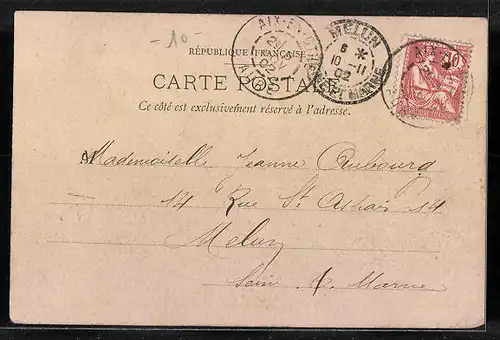 - 10 -
RÉPUBLIQUE FRANÇAISE
CARTE POSTALE
Ce côté est exclusivement réservé à l'adresse.
AIX-EN-OTHE
MELUN
6 *
10 - 11
02
SEINE ET MARNE
AIX
10
Mademoiselle Jeanne Aubourg
14 Rue St 14
Melun
Seine & Marne